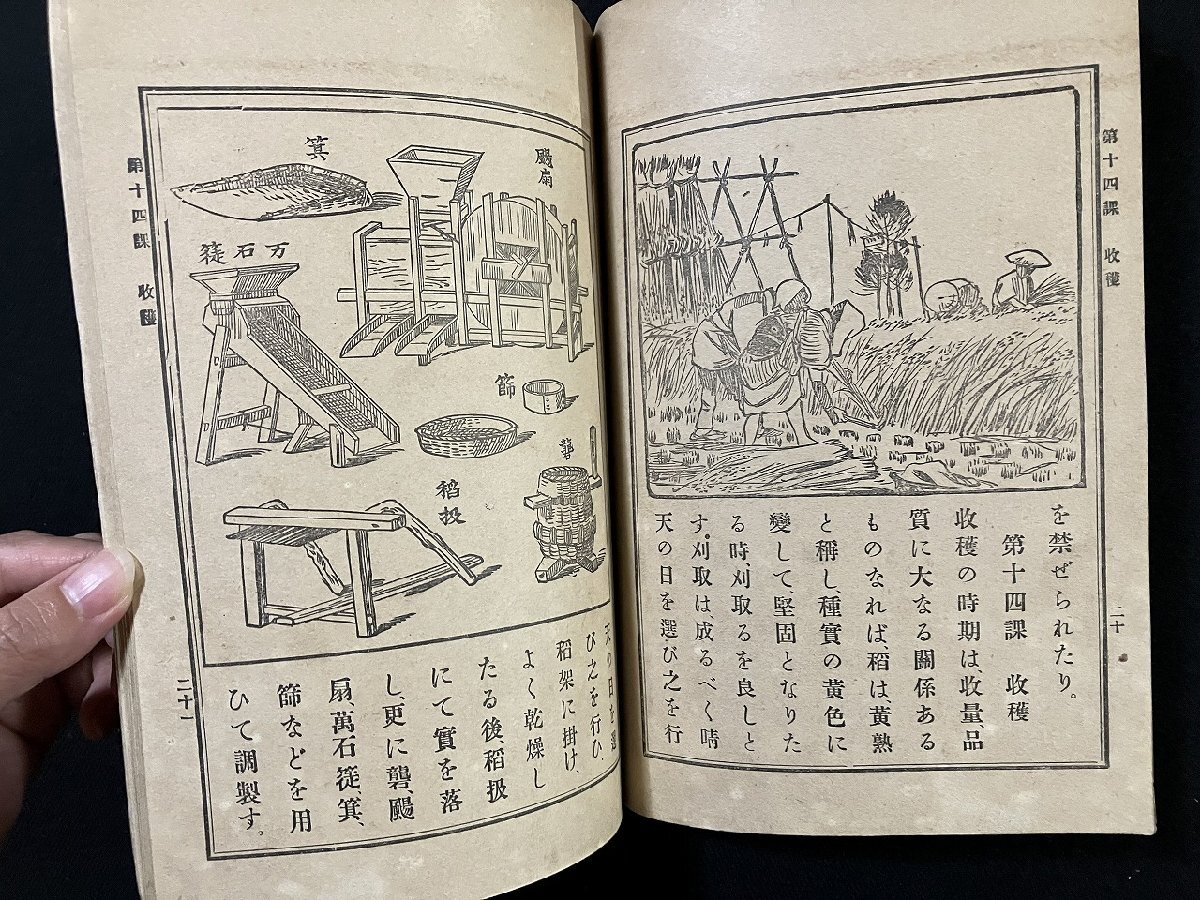 第十四課 收穫
二十
を禁ぜられたり。
第十四課 收穫
收穫の時期は、收量、品
質に大なる關係ある
ものなれば、稻は、黄熟
と稱し、種實の黄色に
變して、堅固となりた
る時、刈取るを良しと
す。刈取は成るべく晴
天の日を選び之を行
颺扇
箕
万石簁
篩
礱
稻扱
の日を選
び之を行ひ、
稻架に掛け、
よく乾燥し
たる後稻扱
にて實を落
し、更に礱、颺
扇、萬石簁、箕、
篩などを用
ひて調製す。
第十四課 收穫
二十一